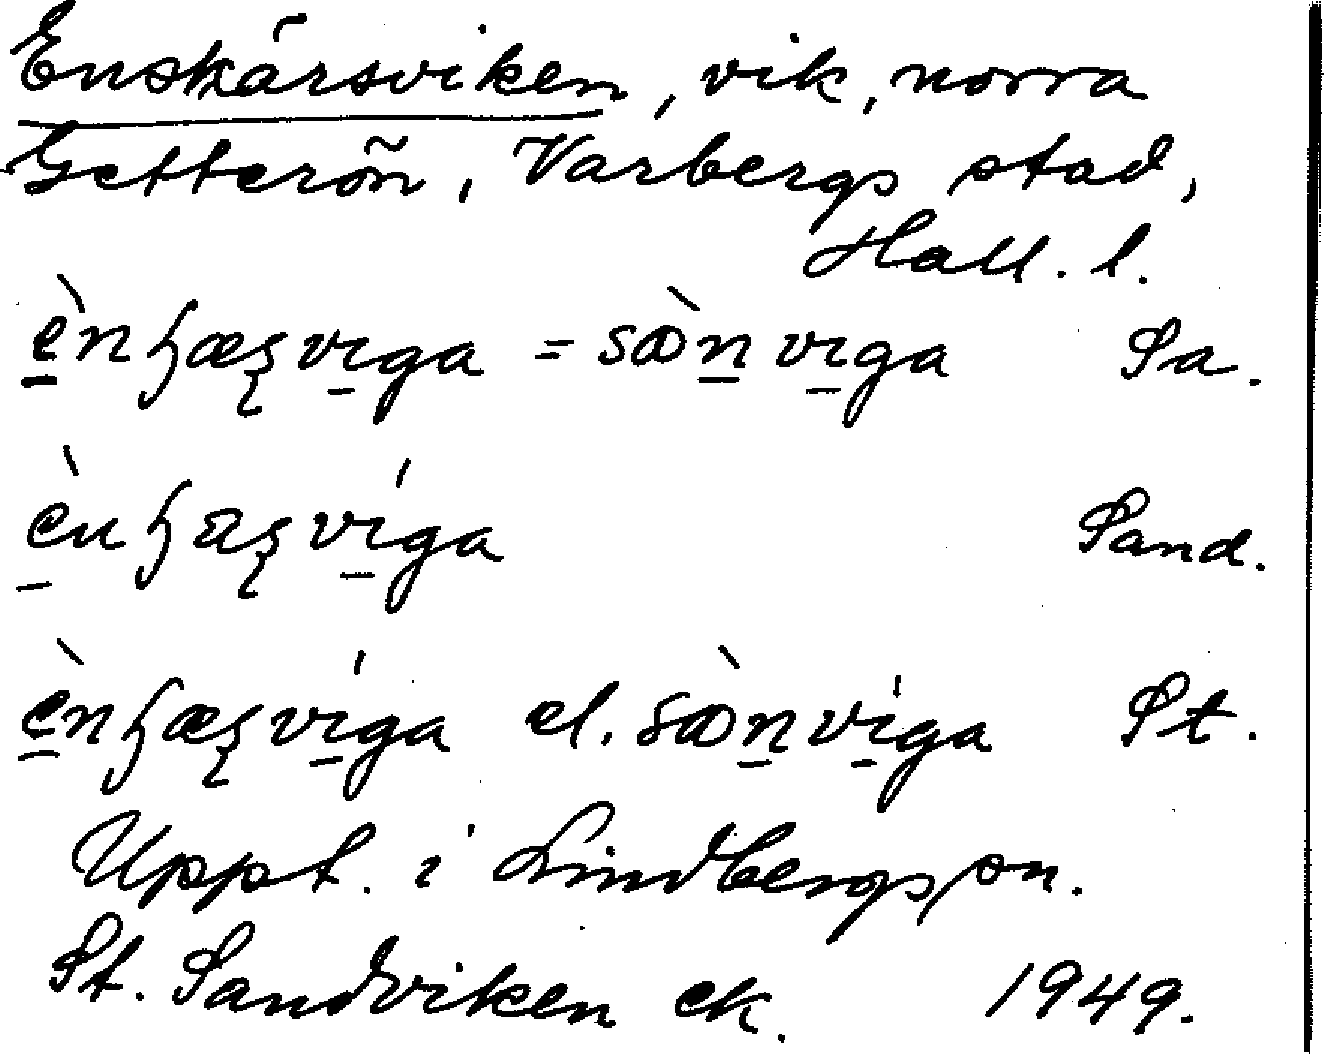 Enskärsviken, vik, norra
Getterön, Varbergs stad,
Hall. l.
ènꞕæʂviga = sòn viga Sa.
ènꞕaʂvíga Sand.
ènꞕæʂvíga el. sònvíga St.
Uppt. i Lindbergs sn.
St. Sandviken ek. 1949.